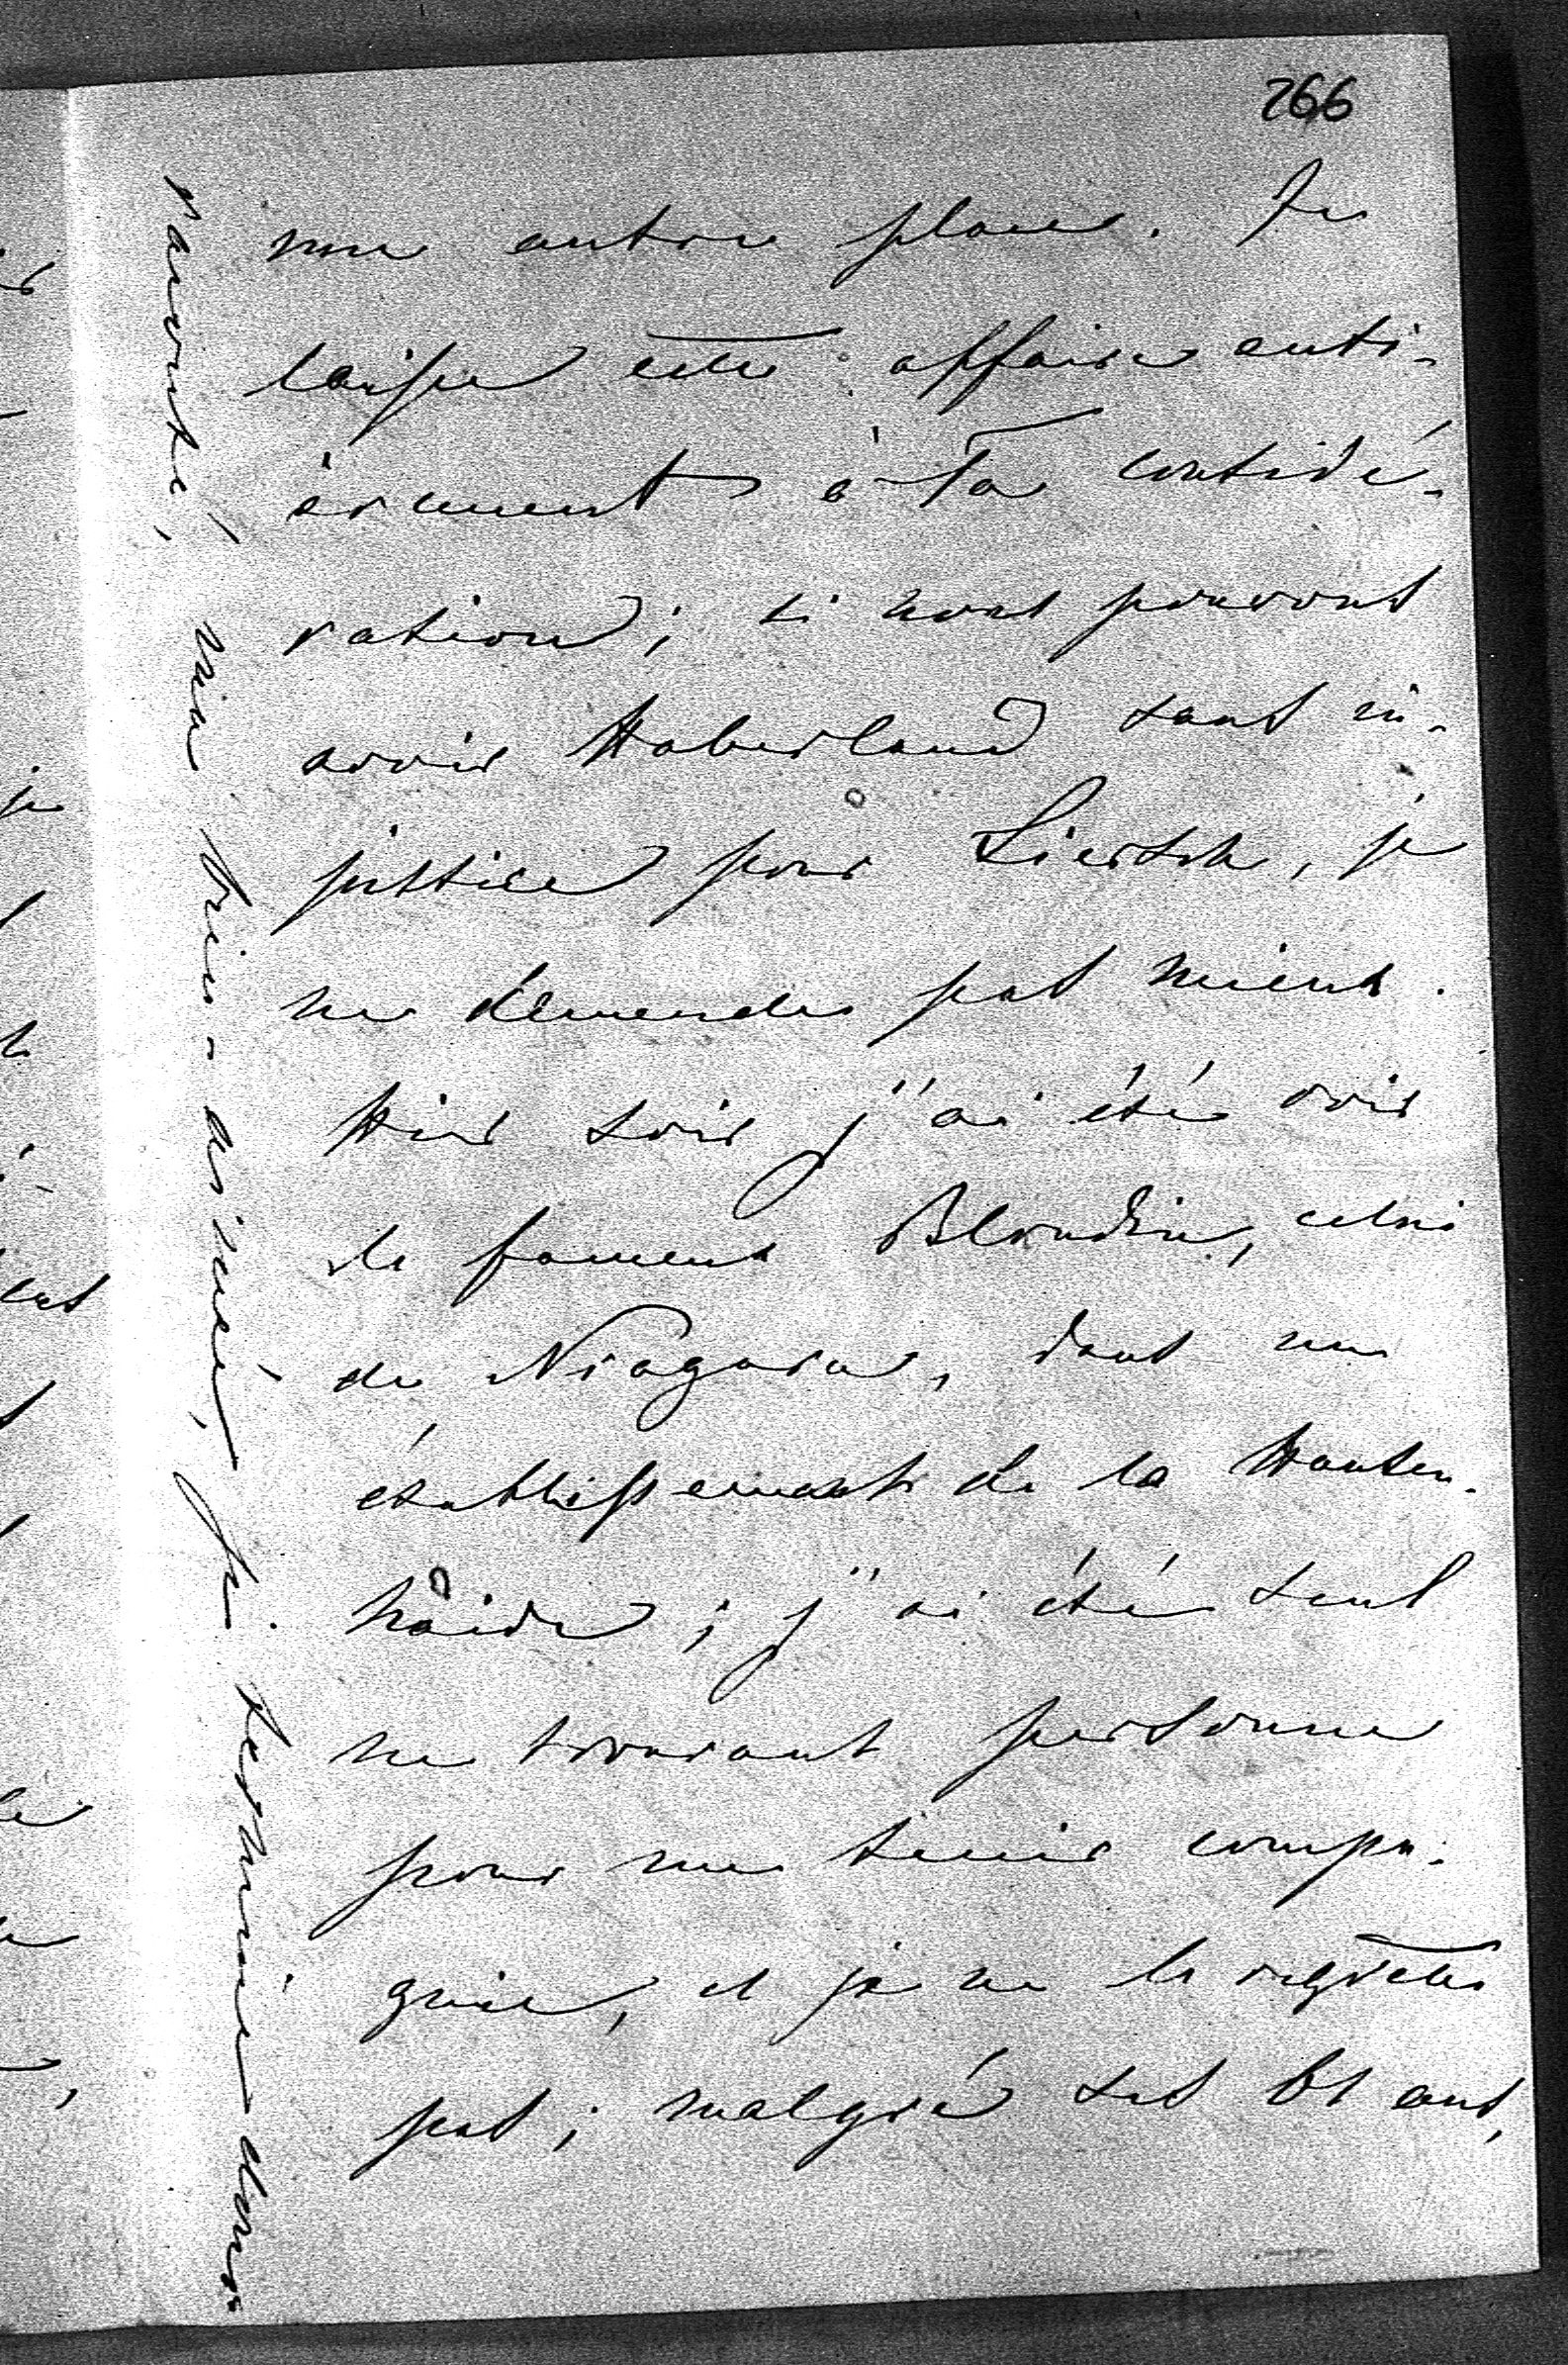 266
une autre place. Je
laisse cette affaire enti-
èrement à Ta considé-
ration; si nous pouvons
avoir Haberland sans in-
justice pour Liersch, je
ne demande pas mieux.
Hier soir j'ai été voir
le fameux Blondin, celui
de Niagara, dans un
établissement de la Hasen-
haide; j'ai été seul
ne trouvant personne
pour me tenir compa-
gnie, et je ne le regrette
pas; malgré ses 61 ans,
bien-aimée, je